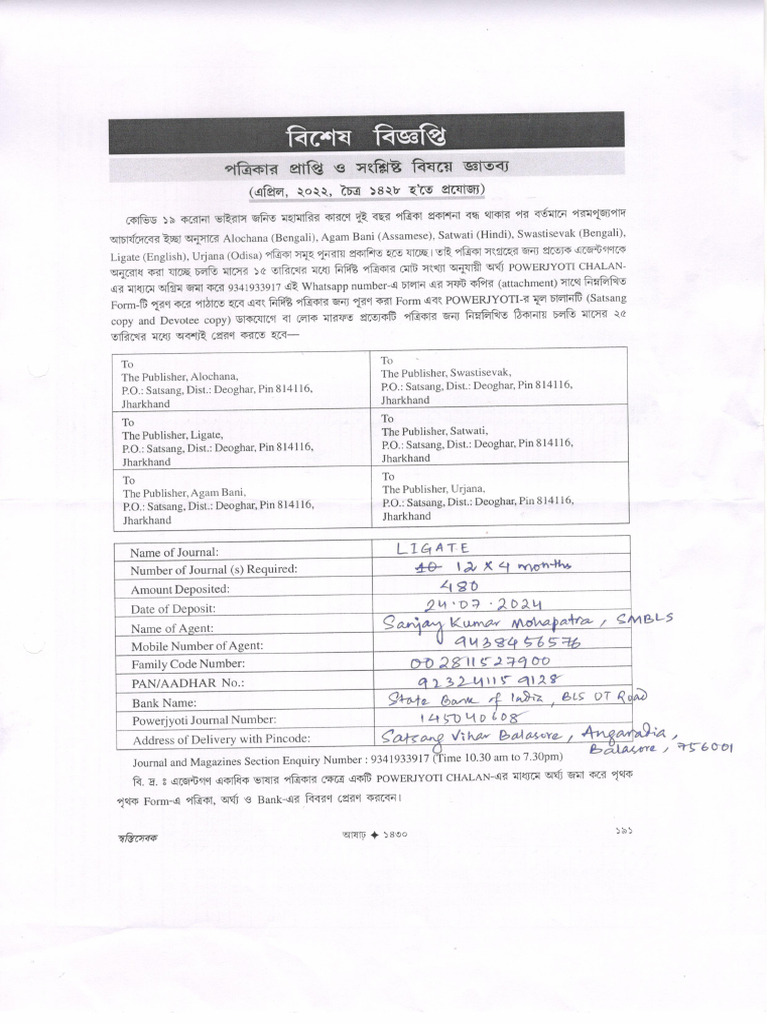 বিশেষ বিজ্ঞপ্তি
পত্রিকার প্রাপ্তি ও সংশ্লিষ্ট বিষয়ে জ্ঞাতব্য
(এপ্রিল, ২০২২, চৈত্র ১৪২৮ হ'তে প্রযোজ্য)
কোভিড ১৯ করোনা ভাইরাস জনিত মহামারির কারণে দুই বছর পত্রিকা প্রকাশনা বন্ধ থাকার পর বর্তমানে পরমপূজ্যপাদ
আচার্যদেবের ইচ্ছা অনুসারে Alochana (Bengali), Agam Bani (Assamese), Satwati (Hindi), Swastisevak (Bengali),
Ligate (English), Urjana (Odisa) পত্রিকা সমূহ পুনরায় প্রকাশিত হতে যাচ্ছে। তাই পত্রিকা সংগ্রহের জন্য প্রত্যেক এজেন্টগণকে
অনুরোধ করা যাচ্ছে চলতি মাসের ১৫ তারিখের মধ্যে নির্দিষ্ট পত্রিকার মোট সংখ্যা অনুযায়ী অর্ঘ্য POWERJYOTI CHALAN-
এর মাধ্যমে অগ্রিম জমা করে 9341933917 এই Whatsapp number-এ চালান এর সফ্ট কপির (attachment) সাথে নিম্নলিখিত
Form-টি পূরণ করে পাঠাতে হবে এবং নির্দিষ্ট পত্রিকার জন্য পূরণ করা Form এবং POWERJYOTI-র মূল চালানটি (Satsang
copy and Devotee copy) ডাকযোগে বা লোক মারফত প্রত্যেকটি পত্রিকার জন্য নিম্নলিখিত ঠিকানায় চলতি মাসের ২৫
তারিখের মধ্যে অবশ্যই প্রেরণ করতে হবে—
To
The Publisher, Alochana,
P.O.: Satsang, Dist.: Deoghar, Pin 814116,
Jharkhand
To
The Publisher, Swastisevak,
P.O.: Satsang, Dist.: Deoghar, Pin 814116,
Jharkhand
To
The Publisher, Ligate,
P.O.: Satsang, Dist.: Deoghar, Pin 814116,
Jharkhand
To
The Publisher, Satwati,
P.O.: Satsang, Dist.: Deoghar, Pin 814116,
Jharkhand
To
The Publisher, Agam Bani,
P.O.: Satsang, Dist.: Deoghar, Pin 814116,
Jharkhand
To
The Publisher, Urjana,
P.O.: Satsang, Dist.: Deoghar, Pin 814116,
Jharkhand
Name of Journal: LIGATE
Number of Journal (s) Required: 12 x 4 months
Amount Deposited: 480
Date of Deposit: 24.07.2024
Name of Agent: Sanjay Kumar Mohapatra, SMBLS
Mobile Number of Agent: 9438456576
Family Code Number: 002811527900
PAN/AADHAR No.: 923241159128
Bank Name: State Bank of India, BLS OT Road
Powerjyoti Journal Number: 145040608
Address of Delivery with Pincode: Satsang Vihar Balasore, Angaradia,
Balasore, 756001
Journal and Magazines Section Enquiry Number : 9341933917 (Time 10.30 am to 7.30pm)
বি. দ্র. ঃ এজেন্টগণ একাধিক ভাষার পত্রিকার ক্ষেত্রে একটি POWERJYOTI CHALAN-এর মাধ্যমে অর্ঘ্য জমা করে পৃথক
পৃথক Form-এ পত্রিকা, অর্ঘ্য ও Bank-এর বিবরণ প্রেরণ করবেন।
স্বস্তিসেবক আষাঢ় ✦ ১৪৩০ ১৯১